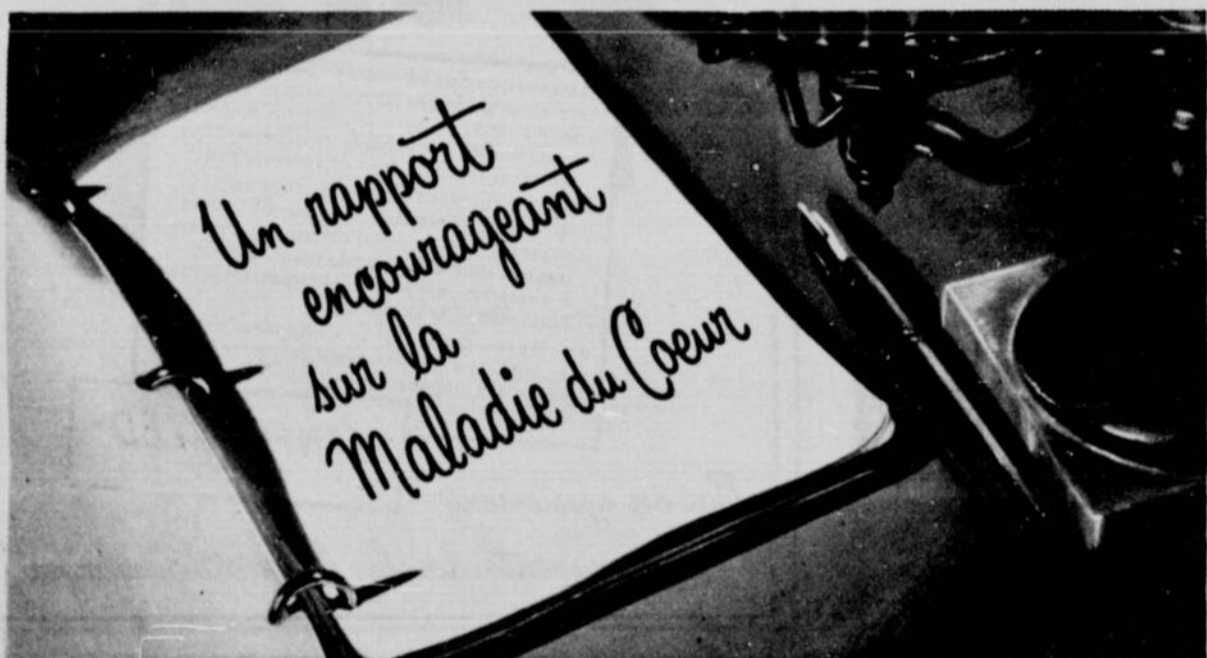 Un rapport
encourageant
sur la
Maladie du Coeur